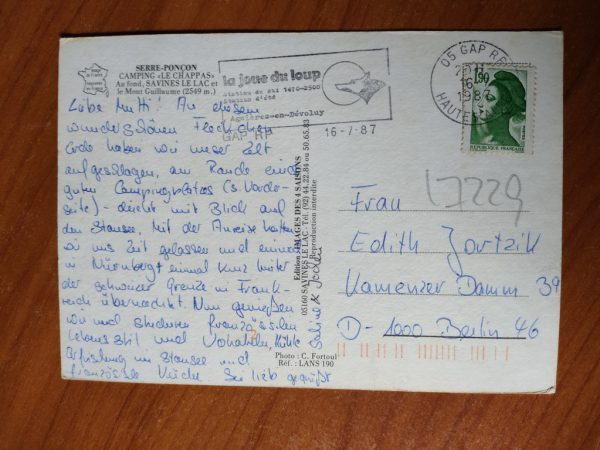 SERRE-PONÇON
CAMPING «LE CHAPPAS»
Au fond, SAVINES LE LAC et
le Mont Guillaume (2549 m.)
la joue du loup
Station de ski 1470-2500
Station d'été
Agnières-en-Dévoluy
GAP RP
16-7-87
05 GAP RP
16
1987
HAUTES
1,90
REPUBLIQUE FRANÇAISE
Liebe Mutti! An diesem
wunderschönen Fleckchen
Erde haben wir unser Zelt
aufgeschlagen, am Rande eines
guten Campingplatzes (s. Vorder-
seite) - direkt mit Blick auf
den Stausee. Mit der Anreise hatten
wir uns Zeit gelassen und einmal
in Nürnberg + einmal kurz hinter
der schweizer Grenze in Frank-
reich übernachtet. Nun genießen
wir und studieren französischen
Lebensstil und Vokabeln, kühle
Erfrischung im Stausee und
französische Küche. Sei lieb gegrüßt
Édition «IMAGES DES 4 SAISONS»
05160 SAVINES LE LAC - Tél. (92) 44.22.84 ou 50.65.83
Reproduction interdite
Photo : C. Fortoul
Réf. : LANS 190
17229
Frau
Edith Jortzik
Kamenzer Damm 39
D-1000 Berlin 46